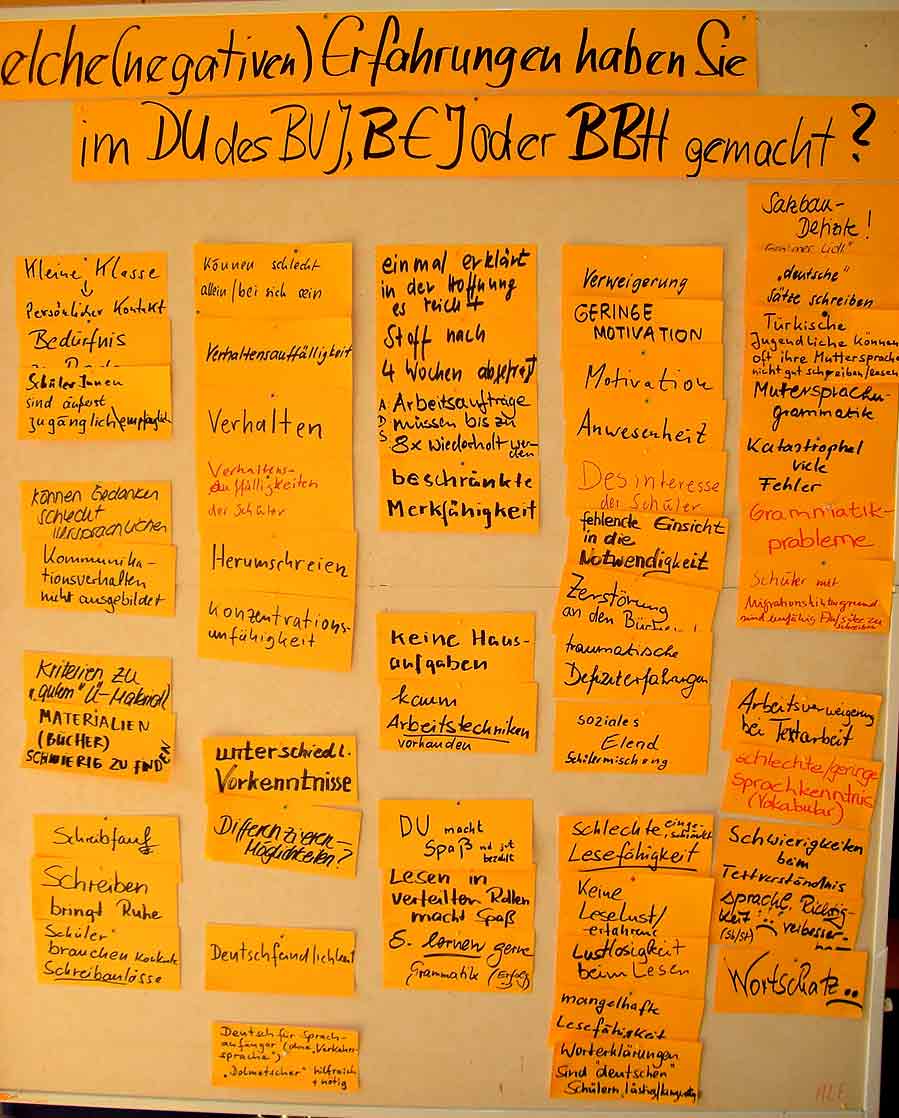 elche (negativen) Erfahrungen haben Sie
im DU des BVJ, BEJ oder BBH gemacht?
Kleine Klasse
↓
Persönlicher Kontakt
Bedürfnis
SchülerInnen
sind äußerst
zugänglich/empfänglich
können Gedanken
schlecht
versprachlichen
Kommunika-
tionsverhalten
nicht ausgebildet
Kriterien zu
"gutem" U-Material
MATERIALIEN
(BÜCHER)
SCHWIERIG ZU FINDEN
Schreiben
bringt Ruhe
Schüler
brauchen konkrete
Schreibanlässe
können schlecht
allein/bei sich sein
Verhaltensauffälligkeit
Verhalten
Verhaltens-
auffälligkeiten
der Schüler
Herumschreien
Konzentrations-
unfähigkeit
unterschiedl.
Vorkenntnisse
Differenzieren-
Möglichkeiten?
Deutschfeindlichkeit
Deutsch für Sprach-
anfänger (ohne "Verkehrs-
sprache")
"Dolmetscher" hilfreich
+ nötig
einmal erklärt
in der Hoffnung
es reicht
Stoff nach
4 Wochen abgefragt
A
D
S
Arbeitsaufträge
müssen bis zu
8x wiederholt wer-
den
beschränkte
Merkfähigkeit
keine Haus-
aufgaben
kaum
Arbeitstechniken
vorhanden
DU macht
Spaß
Lesen in
verteilten Rollen
macht Spaß
S. lernen gerne
Grammatik (Erfolg)
Verweigerung
GERINGE
MOTIVATION
Motivation
Anwesenheit
Desinteresse
der Schüler
fehlende Einsicht
in die
Notwendigkeit
Zerstörung
an den Büchern!
traumatische
Defiziterfahrungen
soziales
Elend
Schülermischung
Schlechte, einge-
schränkt
Lesefähigkeit
Keine
Leselust/
erfahrung
Lustlosigkeit
beim Lesen
mangelhafte
Lesefähigkeit
Worterklärungen
sind "deutschen"
Schülern lästig/
Satzbau-
Defizite!
"deutsche"
Sätze schreiben
Türkische
Jugendliche können
oft ihre Muttersprache
nicht gut schreiben/lesen
Muttersprachen-
grammatik
Katastrophal
viele
Fehler
Grammatik-
probleme
Schüler mit
Migrationshintergrund
sind unfähig Aufsätze zu
schreiben
Arbeitsverweigerung
bei Textarbeit
schlechte/geringe
Sprachkenntnis
(Vokabular)
Schwierigkeiten
beim
Textverständnis
sprachl. Richtig-
keit!
verbesser-
Wortschatz..